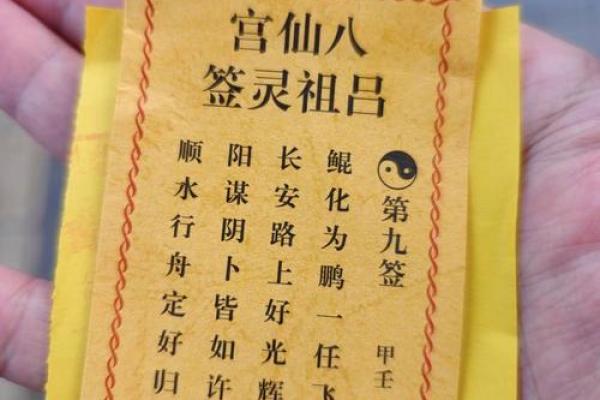 八仙宫
吕祖灵签
第九签
甲壬
鲲化为鹏一任飞
长安路上好光辉
阳谋阴卜皆如许
顺水行舟定好归